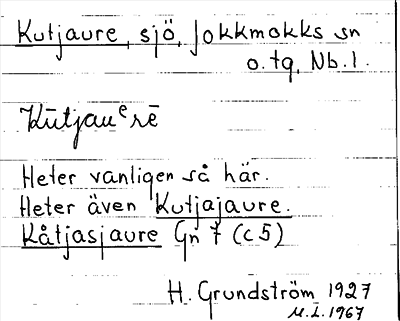 Kutjaure, sjö, Jokkmokks sn
o. tg, Nb. l.
Kūtjauᵉrē
Heter vanligen så här.
Heter även Kutjajaure.
Kåtjasjaure Gn 7 (c5)
H. Grundström 1927
M.L. 1967